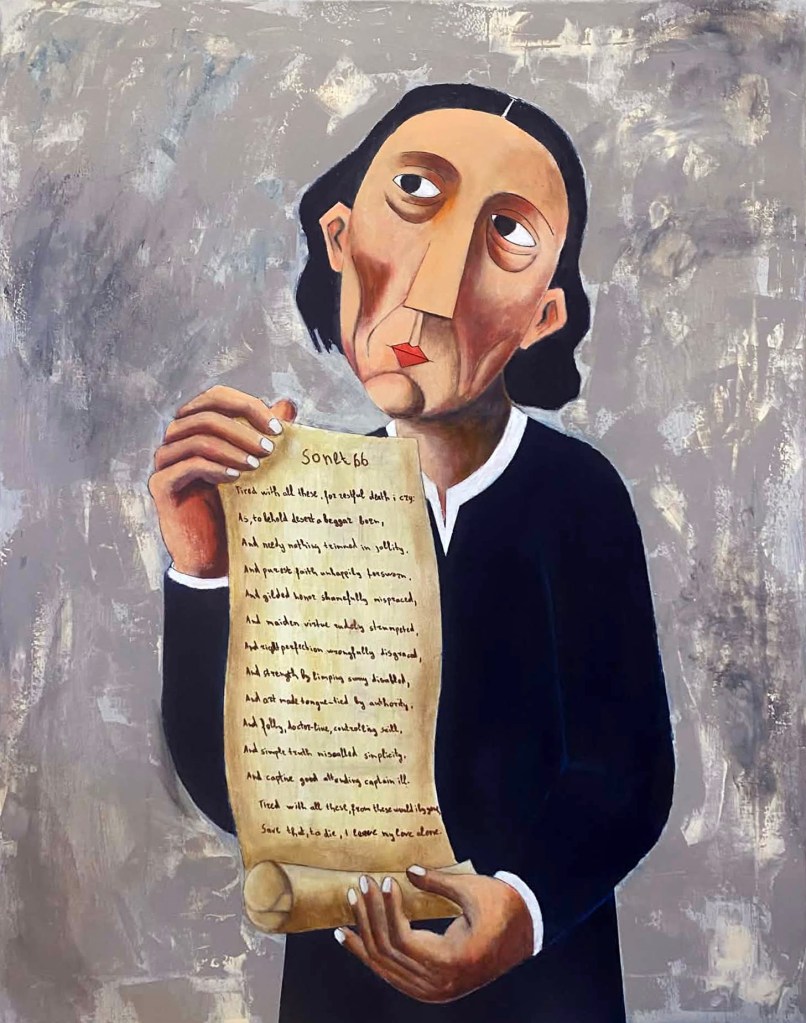 Sonet 66
Tired with all these, for restful death i cry:
As, to behold desert a beggar born,
And needy nothing trimned in jollity.
And purest faith unhappily forsworn.
And gilded honor shamefully misplaced,
And maiden virtue rudely strumpeted,
And right perfection wrongfully disgraced,
And strength by limping sway disabled,
And art made tongue-tied by authority.
And folly, doctor-like, controlling skill.
And simple truth miscalled simplicity.
And captive good attending captain ill.
Tired with all these, from these would i be gone
Save that, to die, I leave my love alone.